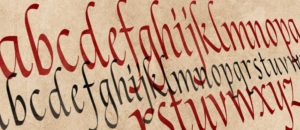 abcdefghijklmnop
abcdefghijklmnopqrstuvw
rstuvwxyz